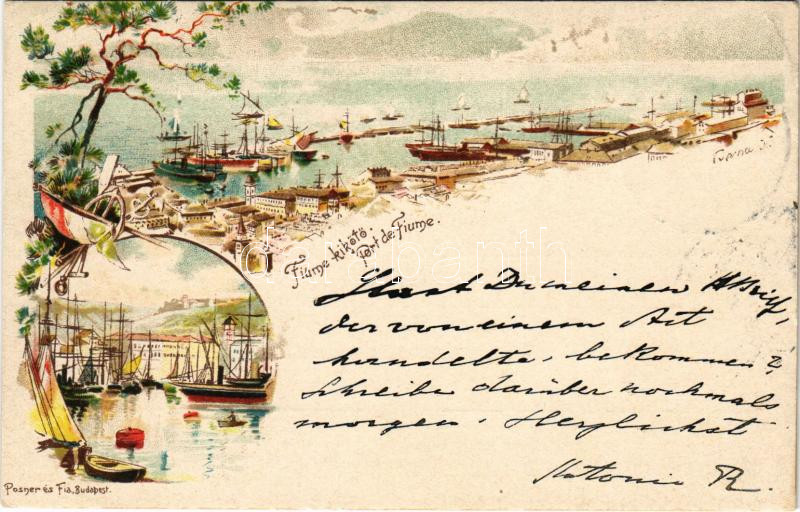 Fiume kikötő.
Port de Fiume.
Hast Du meinen Brief,
der von einem Art
handelte, bekommen?
Schreibe darüber nochmals
morgen. Herzlichst
Antonie R.
Posner és Fia, Budapest.
darabanth